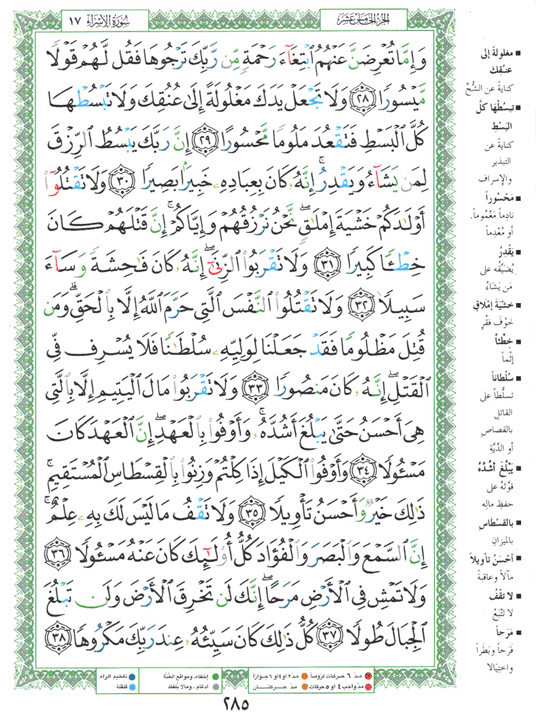 سُورَةُ الإِسْرَاءِ ١٧
الجُزْءُ الخَامِسَ عَشَرَ
وَإِمَّا تُعْرِضَنَّ عَنْهُمُ ٱبْتِغَآءَ رَحْمَةٍ مِّن رَّبِّكَ تَرْجُوهَا فَقُل لَّهُمْ قَوْلًا
مَّيْسُورًا ٢٨ وَلَا تَجْعَلْ يَدَكَ مَغْلُولَةً إِلَىٰ عُنُقِكَ وَلَا تَبْسُطْهَا
كُلَّ ٱلْبَسْطِ فَتَقْعُدَ مَلُومًا مَّحْسُورًا ٢٩ إِنَّ رَبَّكَ يَبْسُطُ ٱلرِّزْقَ
لِمَن يَشَآءُ وَيَقْدِرُ ۚ إِنَّهُۥ كَانَ بِعِبَادِهِۦ خَبِيرًۢا بَصِيرًا ٣٠ وَلَا تَقْتُلُوٓا۟
أَوْلَٰدَكُمْ خَشْيَةَ إِمْلَٰقٍ ۖ نَّحْنُ نَرْزُقُهُمْ وَإِيَّاكُمْ ۚ إِنَّ قَتْلَهُمْ كَانَ
خِطْـًٔا كَبِيرًا ٣١ وَلَا تَقْرَبُوا۟ ٱلزِّنَىٰٓ ۖ إِنَّهُۥ كَانَ فَٰحِشَةً وَسَآءَ
سَبِيلًا ٣٢ وَلَا تَقْتُلُوا۟ ٱلنَّفْسَ ٱلَّتِى حَرَّمَ ٱللَّهُ إِلَّا بِٱلْحَقِّ ۗ وَمَن
قُتِلَ مَظْلُومًا فَقَدْ جَعَلْنَا لِوَلِيِّهِۦ سُلْطَٰنًا فَلَا يُسْرِف فِّى
ٱلْقَتْلِ ۖ إِنَّهُۥ كَانَ مَنصُورًا ٣٣ وَلَا تَقْرَبُوا۟ مَالَ ٱلْيَتِيمِ إِلَّا بِٱلَّتِى
هِىَ أَحْسَنُ حَتَّىٰ يَبْلُغَ أَشُدَّهُۥ ۚ وَأَوْفُوا۟ بِٱلْعَهْدِ ۖ إِنَّ ٱلْعَهْدَ كَانَ
مَسْـُٔولًا ٣٤ وَأَوْفُوا۟ ٱلْكَيْلَ إِذَا كِلْتُمْ وَزِنُوا۟ بِٱلْقِسْطَاسِ ٱلْمُسْتَقِيمِ ۚ
ذَٰلِكَ خَيْرٌ وَأَحْسَنُ تَأْوِيلًا ٣٥ وَلَا تَقْفُ مَا لَيْسَ لَكَ بِهِۦ عِلْمٌ ۚ
إِنَّ ٱلسَّمْعَ وَٱلْبَصَرَ وَٱلْفُؤَادَ كُلُّ أُو۟لَٰٓئِكَ كَانَ عَنْهُ مَسْـُٔولًا ٣٦
وَلَا تَمْشِ فِى ٱلْأَرْضِ مَرَحًا ۖ إِنَّكَ لَن تَخْرِقَ ٱلْأَرْضَ وَلَن تَبْلُغَ
ٱلْجِبَالَ طُولًا ٣٧ كُلُّ ذَٰلِكَ كَانَ سَيِّئُهُۥ عِندَ رَبِّكَ مَكْرُوهًا ٣٨
مغلولةً إلى
عنقِكَ
كنايةً عن الشُّحِّ
تبسُطْها كلَّ
البَسْطِ
كنايةً عن
التبذير
والإسراف
مَحْسُوراً
نادِماً مَغْمُوماً.
أو مُعْدِماً
يَقْدِرُ
يُضَيِّقُه على
مَن يشاءُ
خَشْيَةَ إملاقٍ
خَوْفَ فَقْرٍ
خِطْئاً
إثْماً
سُلْطاناً
تسلُّطاً على
القاتِلِ
بالقصاصِ
أو الدِّيَةِ
يَبْلُغَ أشُدَّهُ
قوَّتَه على
حفظِ مالِه
بالقِسْطاسِ
بالميزانِ
أحْسَنُ تأويلاً
مآلاً وعاقبةً
لا تَقْفُ
لا تَتَّبِعْ
مَرَحاً
فرَحاً وبَطَراً
واختِيالاً
مدّ ٦ حركات لزوماً
مدّ ٢ أو ٤ أو ٦ جوازاً
إخفاء، ومواقع الغُنَّة
تفخيم الراء
مدّ واجب ٤ أو ٥ حركات
مدّ حركتان
ادغام، وما لا يُلفَظ
قلقلة
٢٨٥